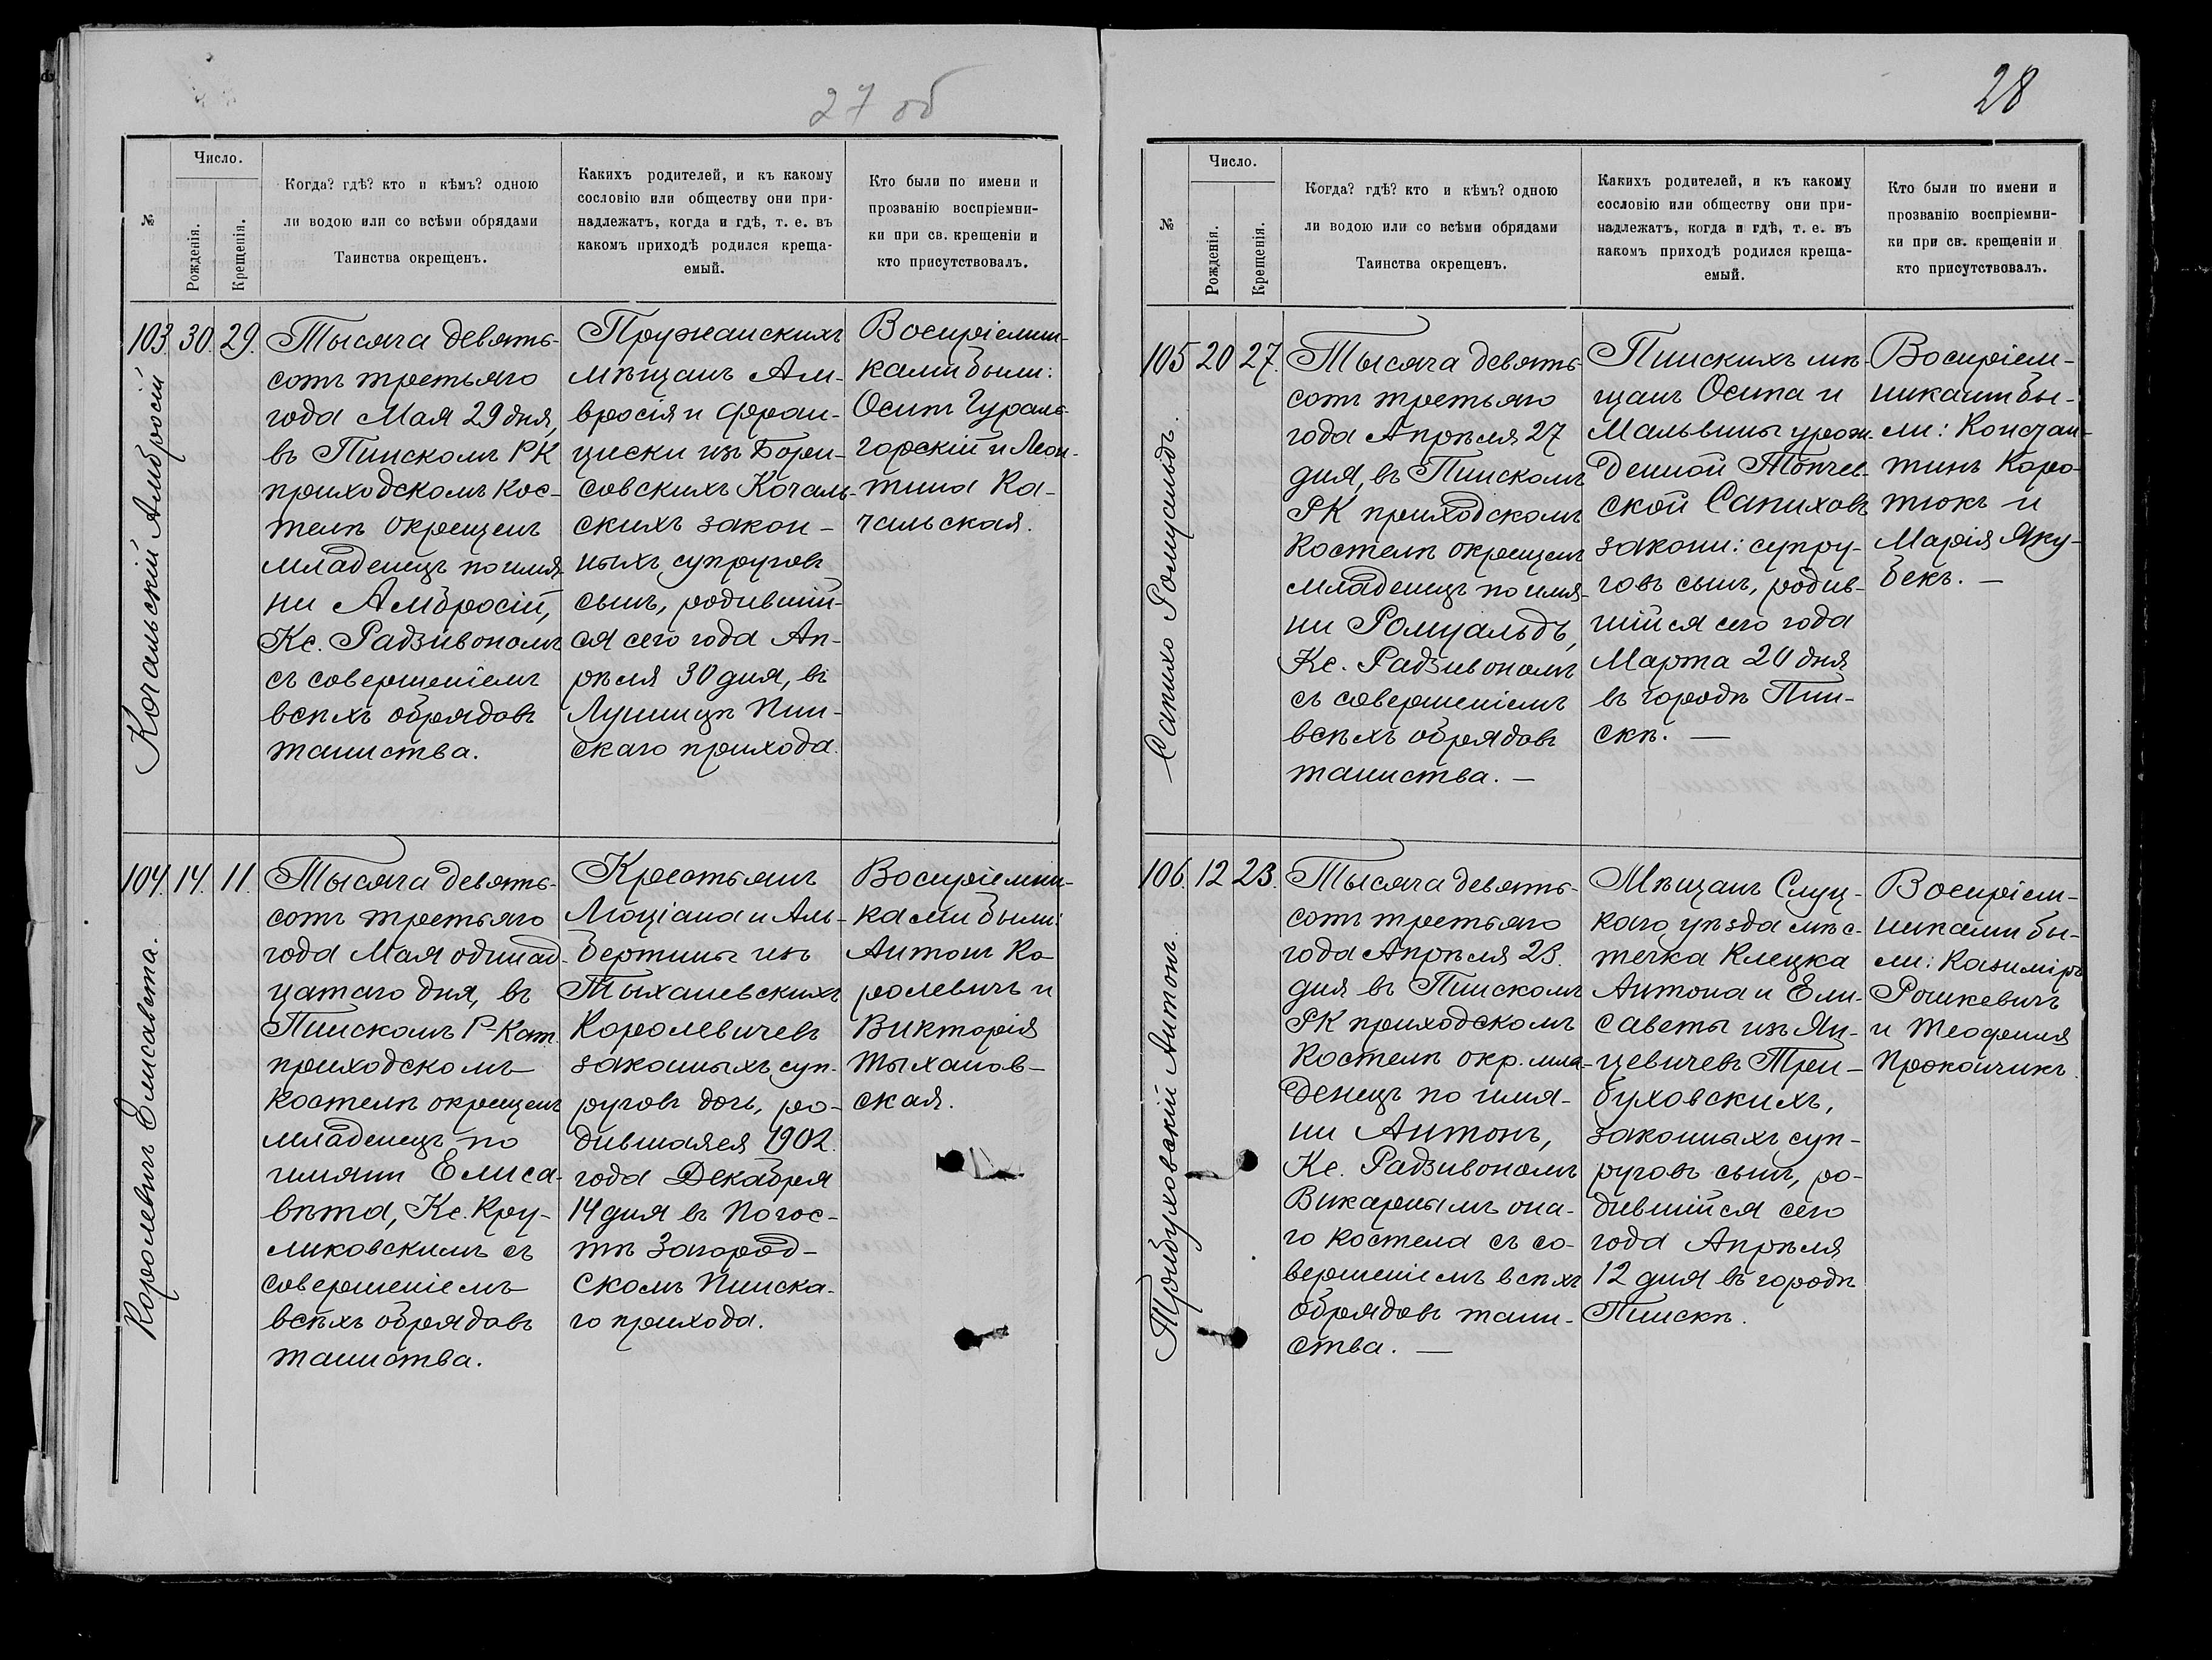 27 об
№
Число.
Рожденія.
Крещенія.
Когда? гдѣ? кто и кѣмъ? одною
ли водою или со всѣми обрядами
Таинства окрещенъ.
Какихъ родителей, и къ какому
сословію или обществу они при-
надлежатъ, когда и гдѣ, т. е. въ
какомъ приходѣ родился креща-
емый.
Кто были по имени и
прозванію воспріемни-
ки при св. крещеніи и
кто присутствовалъ.
103. 30. 29.
Качальскій Амбросій
Тысяча девять-
сотъ третьяго
года Мая 29 дня,
въ Пинскомъ РК
приходскомъ кос-
телѣ окрещенъ
младенецъ по имя-
ни Амбросій,
Кс. Радзивономъ
съ совершеніемъ
всѣхъ обрядовъ
таинства.
Пружанскихъ
мѣщанъ Ам-
вросія и Фран-
циски изъ Бори-
совскихъ Качаль-
скихъ закон-
ныхъ супруговъ
сынъ, родившій-
ся сего года Ап-
рѣля 30 дня, въ
Лунинцѣ Пин-
скаго прихода.
Воспріемни-
ками были:
Осипъ Гураль-
горскій и Леон-
тина Ка-
чальская.
104. 14. 11.
Королевичъ Елисавета.
Тысяча девять-
сотъ третьяго
года Мая одинад-
цатаго дня, въ
Пинскомъ Р-Кат.
приходскомъ
костелѣ окрещенъ
младенецъ по
имяни Елиса-
вѣта, Кс. Кру-
ликовскимъ съ
совершеніемъ
всѣхъ обрядовъ
таинства.
Крестьянъ
Люціана и Аль-
бертины изъ
Тыхановскихъ
Королевичевъ
законныхъ суп-
руговъ дочь, ро-
дившаяся 1902
года Декабря
14 дня въ Погос-
тѣ Загород-
скомъ Пинска-
го прихода.
Воспріемни-
ками были:
Антонъ Ко
ролевичъ и
Викторія
Тыханов-
ская.
28
№
Число.
Рожденія.
Крещенія.
Когда? гдѣ? кто и кѣмъ? одною
ли водою или со всѣми обрядами
Таинства окрещенъ.
Какихъ родителей, и къ какому
сословію или обществу они при-
надлежатъ, когда и гдѣ, т. е. въ
какомъ приходѣ родился креща-
емый.
Кто были по имени и
прозванію воспріемни-
ки при св. крещеніи и
кто присутствовалъ.
105 20 27.
Сапихо Ромуальдъ.
Тысяча девять-
сотъ третьяго
года Апрѣля 27
дня, въ Пинскомъ
РК приходскомъ
костелѣ окрещенъ
младенецъ по имя-
ни Ромуальдъ,
Кс. Радзивономъ
съ совершеніемъ
всѣхъ обрядовъ
таинства. —
Пинскихъ мѣ-
щанъ Осипа и
Мальвины урож-
денной Топчев-
ской Сапиховъ
законн: супру-
говъ сынъ, родив-
шійся сего года
Марта 20 дня
въ городѣ Пин-
скѣ. —
Воспріем-
никами бы-
ли: Констан-
тинъ Коро-
тюкъ и
Марія Яку-
бекъ. —
106. 12 23.
Трибуховскій Антонъ.
Тысяча девять-
сотъ третьяго
года Апрѣля 23.
дня въ Пинскомъ
РК приходскомъ
костелѣ окр. мла-
денецъ по имя-
ни Антонъ,
Кс. Радзивономъ
Викарнымъ она-
го костела съ со-
вершеніемъ всѣхъ
обрядовъ таин-
ства. —
Мѣщанъ Слуц-
каго уѣзда мѣс-
течка Клецка
Антона и Ели-
саветы изъ Ян-
цевичевъ Три-
буховскихъ,
законныхъ суп-
руговъ сынъ, ро-
дившійся сего
года Апрѣля
12 дня въ городѣ
Пинскѣ.
Воспріем-
никами бы-
ли: Казиміръ
Рошкевичъ
и Теофиля
Прокопчикъ